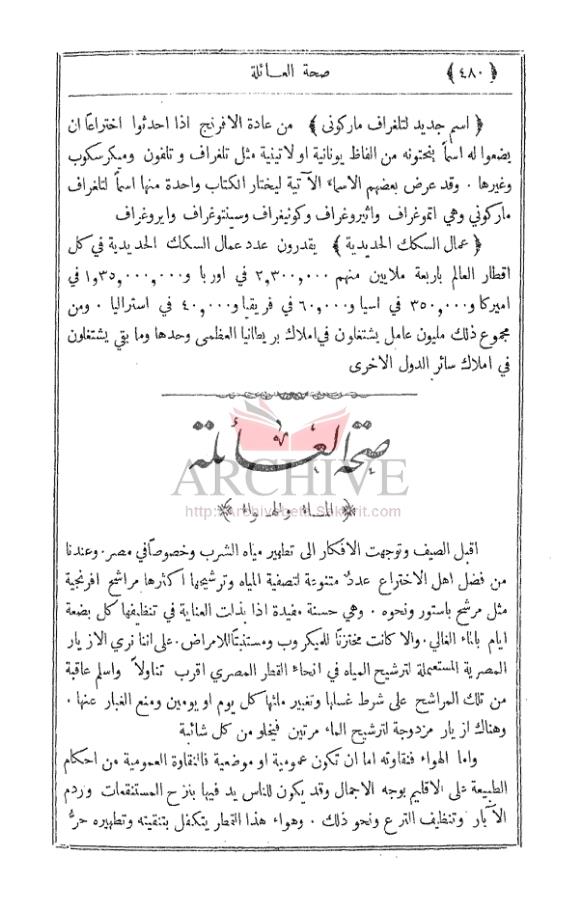 ﴿ ٤٨٠ ﴾ صحة العائلة
﴿ اسم جديد لتلغراف ماركوني ﴾ من عادة الافرنج اذا احدثوا اختراعًا ان
يضعوا له اسماً ينحتونه من الفاظ يونانية او لاتينية مثل تلغراف و تلفون وميكرسكوب
وغيرها . وقد عرض بعضهم الاسماء الآتية ليختار الكتاب واحدة منها اسماً لتلغراف
ماركوني وهي اتموغراف واثيروغراف وكونيغراف وسينتوغراف وايروغراف
﴿ عمال السكك الحديدية ﴾ يقدرون عدد عمال السكك الحديدية في كل
اقطار العالم باربعة ملايين منهم ٢,٣٠٠,٠٠٠ في اوربا و١,٣٥٠,٠٠٠,٠٠٠ في
اميركا و٣٥٠,٠٠٠ في اسيا و٦٠,٠٠٠ في فريقيا و٤٠,٠٠٠ في استراليا . ومن
مجموع ذلك مليون عامل يشتغلون في املاك بريطانيا العظمى وحدها وما بقي يشتغلون
في املاك سائر الدول الاخرى
صحة العائلة
ARCHIVE
http://Archivebeta.Sakhrit.com
﴿ الماء والهواء ﴾
اقبل الصيف وتوجهت الافكار الى تطهير مياه الشرب وخصوصاً في مصر. وعندنا
من فضل اهل الاختراع عددٌ متنوعة لتصفية المياه وترشيحها اكثرها مراشح افرنجية
مثل مرشح باستور ونحوه . وهي حسنة مفيدة اذا بذلت العناية في تنظيفها كل بضعة
ايام بالماء الغالي. والا كانت مختزنًا للميكروب ومستنبتًا للامراض. على اننا نرى الازيار
المصرية المستعملة لترشيح المياه في انحاء القطر المصري اقرب تناولاً واسلم عاقبة
من تلك المراشح على شرط غسلها وتغيير مائها كل يوم او يومين ومنع الغبار عنها .
وهناك ازيار مزدوجة لترشيح الماء مرتين فيخلو من كل شائبة
واما الهواء فنقاوته اما ان تكون عمومية او موضعية فالنقاوة العمومية من احكام
الطبيعة على الاقليم بوجه الاجمال وقد يكون للناس يد فيها بنزح المستنقعات وردم
الآبار وتنظيف الترع ونحو ذلك . وهواء هذا القطر يتكفل بتنقيته وتطهيره حرُّ